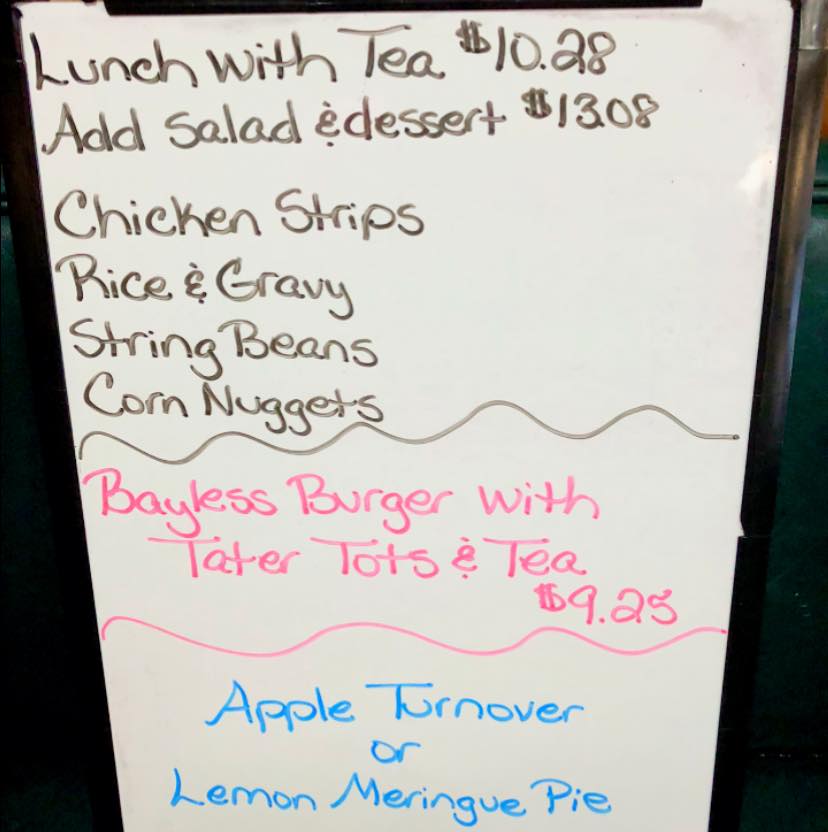 Lunch with Tea $10.28
Add Salad & dessert $13.08
Chicken Strips
Rice & Gravy
String Beans
Corn Nuggets
Bayless Burger with
Tater Tots & Tea
$9.25
Apple Turnover
or
Lemon Meringue Pie